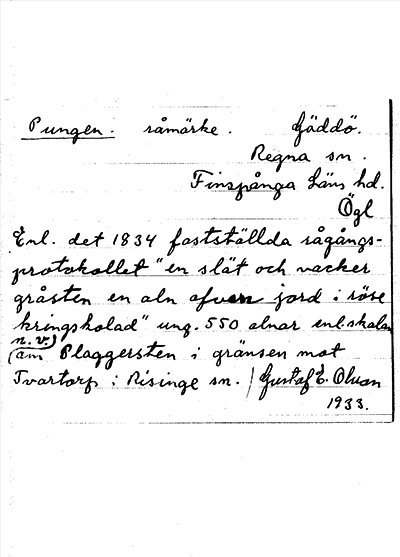 Pungen. råmärke. Gäddö.
Regna sn.
Finspånga läns hd.
Ögl
Enl. det 1834 fastställda rågångs-
protokollet "en slät och vacker
gråsten en aln ofvan jord i röse
kringskolad" ung. 550 alnar enl. skalan
n.v.
(om Plaggersten i gränsen mot
Tvartorp i Risinge sn. / Gustaf E. Olsson
1933.